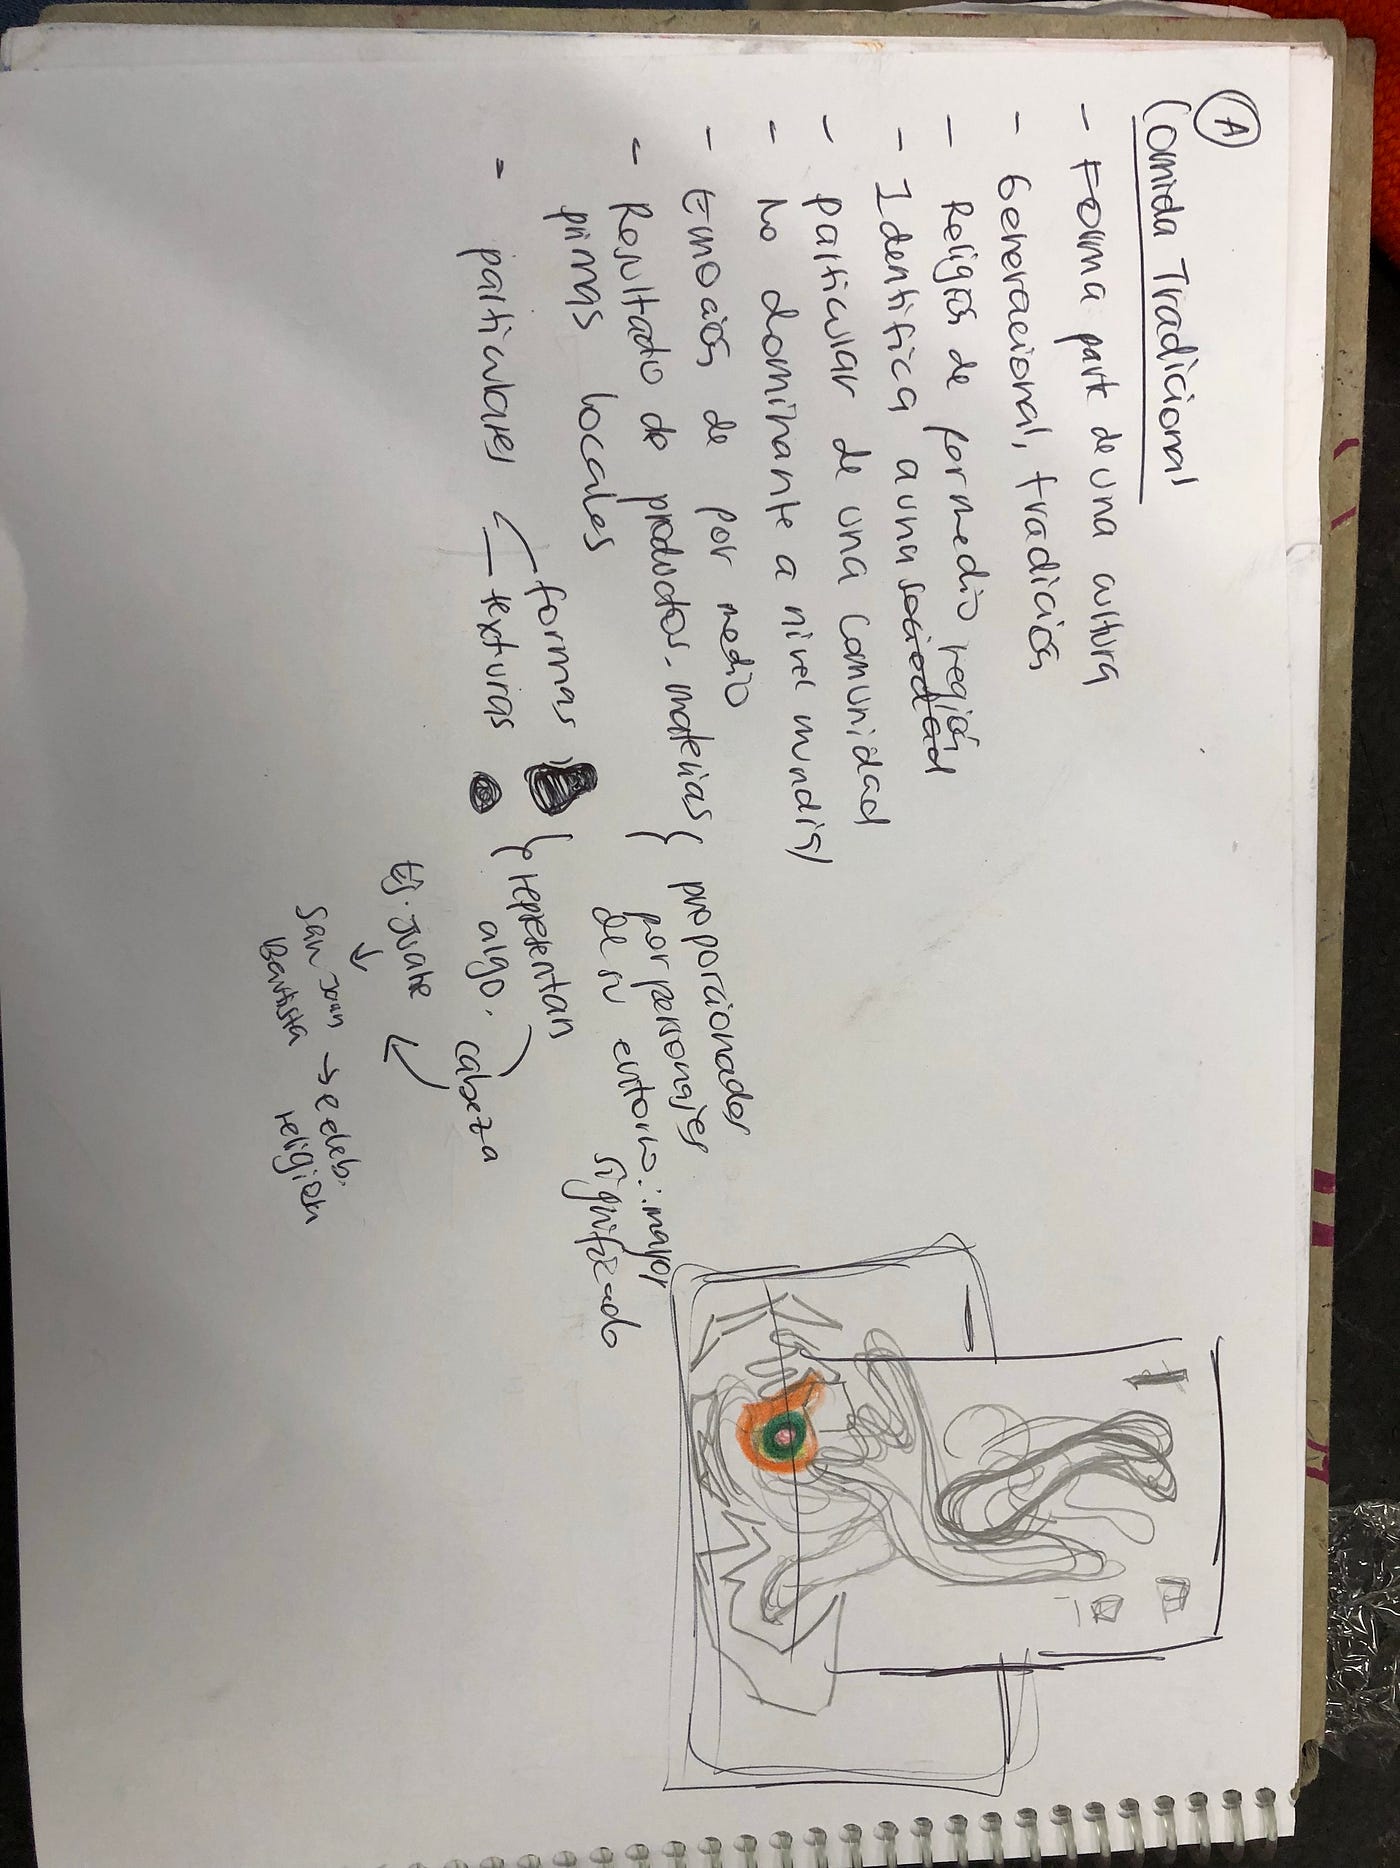 A
Comida Tradicional
- Forma parte de una cultura
- Generacional, tradición
- Religión de por medio región
- Identifica a una sociedad
- particular de una comunidad
- No dominante a nivel mundial
- Emoción de por medio
- Resultado de productos, materias { proporcionados
primas locales
por personajes
de su entorno ∴ mayor
significado
- particulares
formas
texturas
} representan
algo. cabeza
Ej. Juane
↓
San Juan → celeb.
Bautista religión